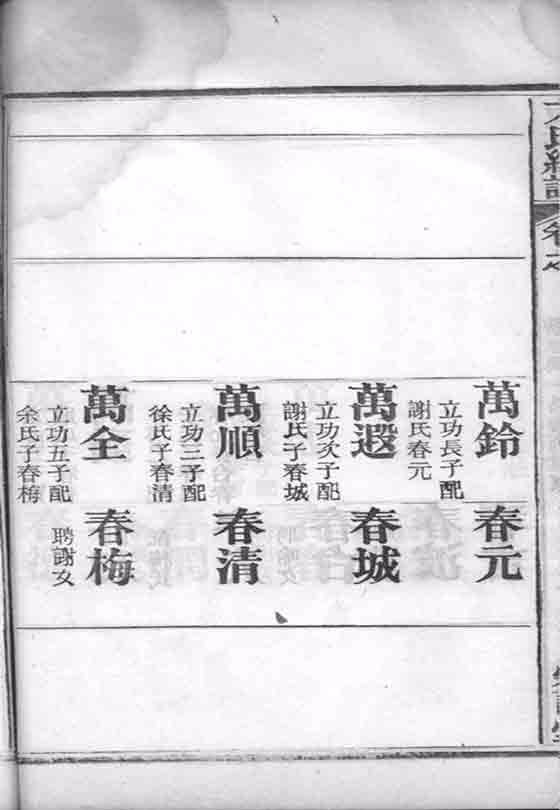 卷之七
萬鈴
立功長子配
謝氏春元
萬遐
立功次子配
謝氏子春城
萬順
立功三子配
徐氏子春清
萬全
立功五子配
余氏子春梅
春元
春城
春清
春梅
聘謝女